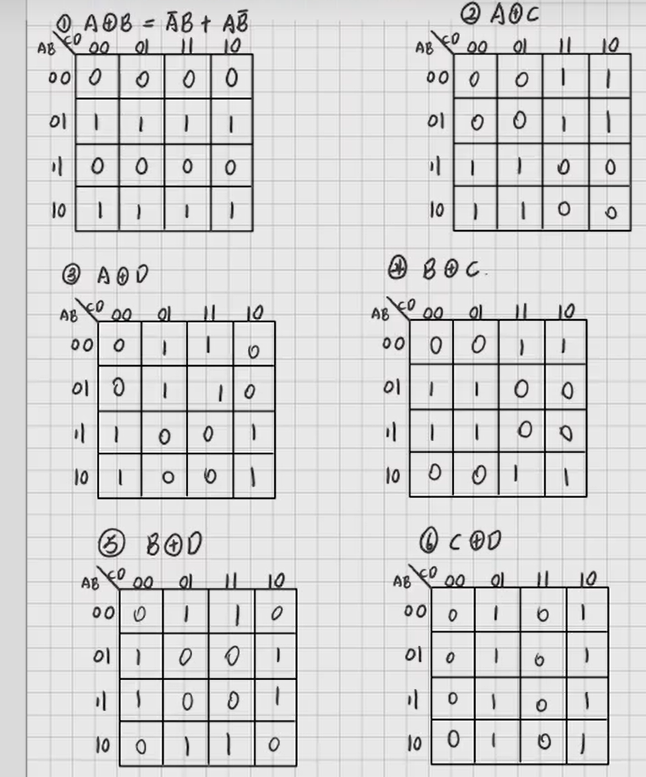 ① A⊕B = ĀB + AB̄
AB CD 00 01 11 10
00 0 0 0 0
01 1 1 1 1
11 0 0 0 0
10 1 1 1 1
② A⊕C
AB CD 00 01 11 10
00 0 0 1 1
01 0 0 1 1
11 1 1 0 0
10 1 1 0 0
③ A⊕D
AB CD 00 01 11 10
00 0 1 1 0
01 0 1 1 0
11 1 0 0 1
10 1 0 0 1
④ B⊕C.
AB CD 00 01 11 10
00 0 0 1 1
01 1 1 0 0
11 1 1 0 0
10 0 0 1 1
⑤ B⊕D
AB CD 00 01 11 10
00 0 1 1 0
01 1 0 0 1
11 1 0 0 1
10 0 1 1 0
⑥ C⊕D
AB CD 00 01 11 10
00 0 1 0 1
01 0 1 0 1
11 0 1 0 1
10 0 1 0 1